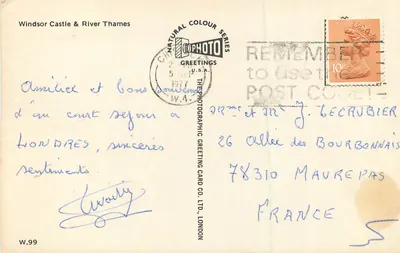 Windsor Castle & River Thames
NATURAL COLOUR SERIES
PHOTO
GREETINGS
U.S.A.
THE PHOTOGRAPHIC GREETING CARD CO. LTD., LONDON
W.4.
REMEMBER
to use the
POST CODE
Amitiés et bons souvenirs
d'un court séjour à
LONDRES, sincères
sentiments.
et Mr J. LECRUBIER
26 Allée des BOURBONNAIS
78310 MAUREPAS
FRANCE
W.99